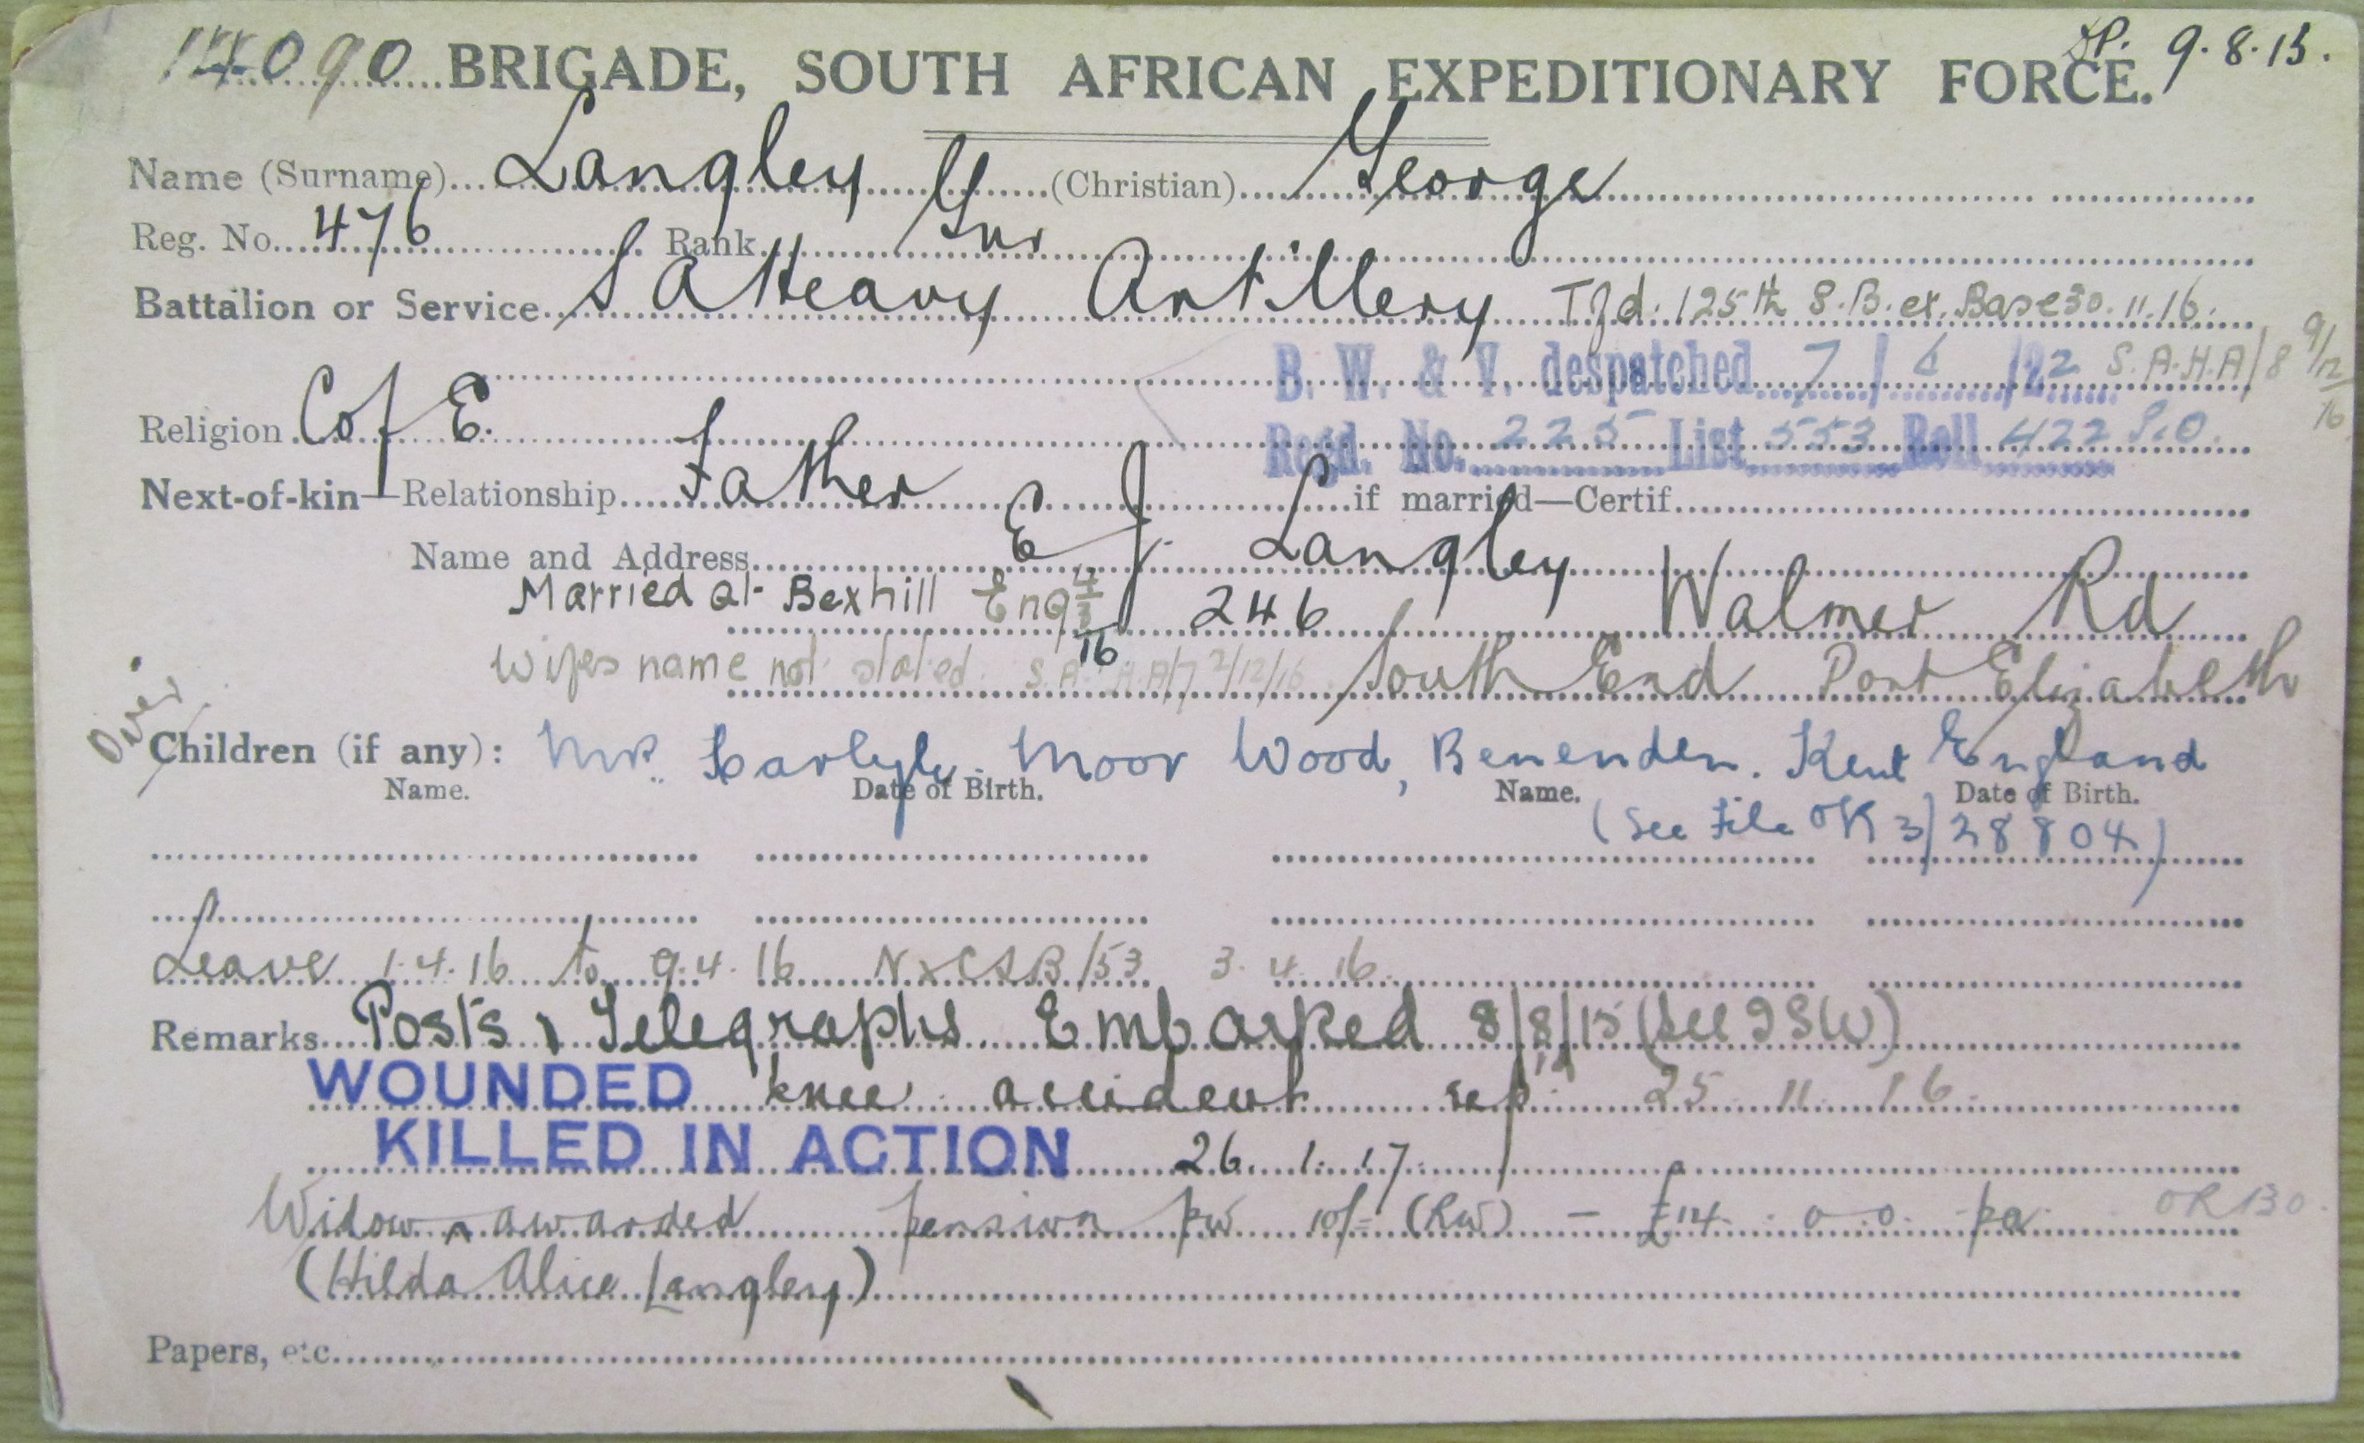 14090 BRIGADE, SOUTH AFRICAN EXPEDITIONARY FORCE. 9.8.15.
Name (Surname) Langley (Christian) George
Reg. No. 476 Rank Gnr
Battalion or Service S A Heavy Artillery Tfd. 125th S.B. ex. Base 30.11.16.
B. W. & V. despatched 7/6/22 S.A.H.A/8 9/12/16
Religion C of E. Regd. No. 225 List 553 Roll 422
Next-of-kin—Relationship Father if married—Certif
Name and Address E J. Langley
Married at Bexhill Eng 4/3/16 246 Walmer Rd
Wifes name not stated. S.A.H.A/7 2/12/16 South End Port Elizabeth
Over
Children (if any): Mrs. Moor Wood, Benenden. Kent England
Name. Date of Birth. Name. Date of Birth.
(See File OR 3/28804)
Leave 1.4.16 to 9.4.16 /53 3.4.16.
Remarks Posts & Telegraphs. Embarked 8/8/15 (See ISW)
WOUNDED knee accident rep'd 25.11.16.
KILLED IN ACTION 26.1.17
Widow awarded pension pw 10/= (RW) — £14.0.0. pa
(Hilda Alice Langley)
Papers, etc.